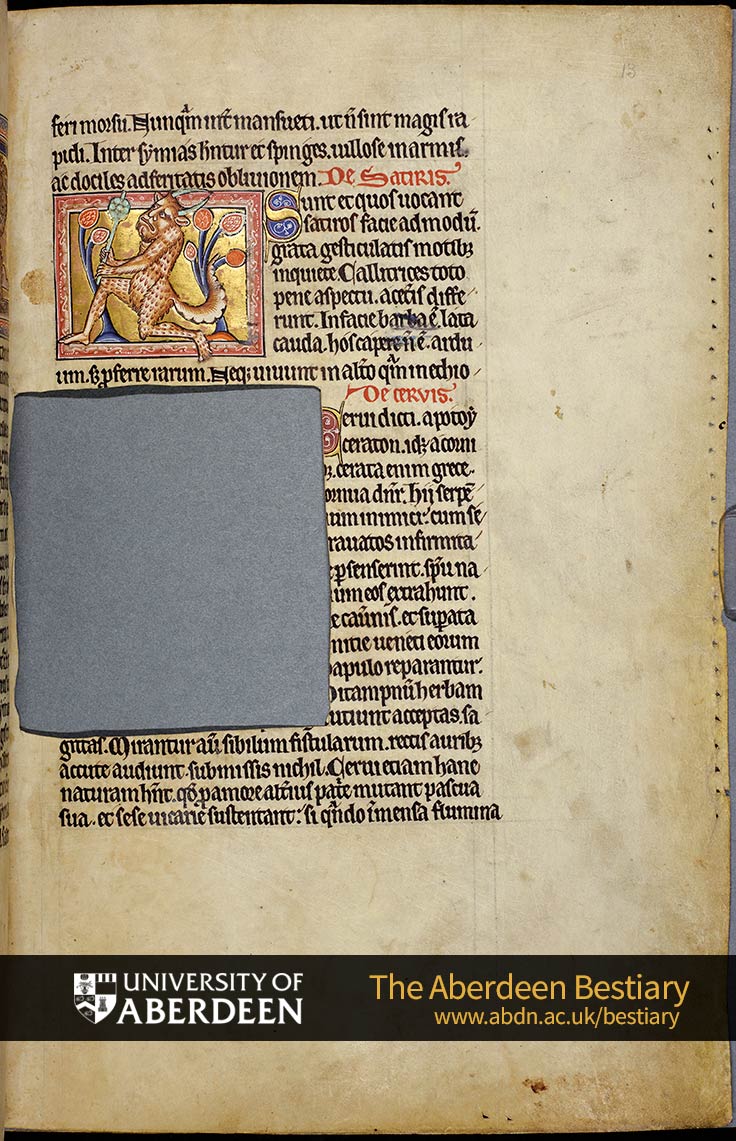 13
feri morsu. Nunqͣm urͭ mansueti. ut n̄ sint magis ra
pidi. Inter symias hn̄tur et spinges. uillose in armis.
ac dociles ad feritatis obliuionem. De Satiris.
Sunt et quos uocant
satiros facie admodū.
grata gesticulatis motibꝫ
inquiete. Callitrices toto
pene aspectu. a cetis diffe
runt. In facie barba ē. lata
cauda. hos capere n̄ ē. ardu
um. sꝫ ꝓferre rarum. Neqꝫ uiuunt in alto qͣm in ethio
De ceruis.
Cerui dicti. apo toỹ
ceraton. idꝫ a corni
bꝫ. cerata enim grece.
ornua dn̄r. Hij serpē
tum inimici. cum se
rauatos infirmita
e ꝑsenserint. sp̄u na
ium eos extrahunt.
e cauernis. et suꝑata
nitie ueneti eorum
apulo reparantur.
Ditampnū herbam
cutiunt acceptas sa
gittas. Mirantur aū sibilum fistularum. rectis auribꝫ
accute audiunt. submissis nichil. Cerui etiam hanc
naturam hn̄t. qđ ꝑ amore alt̄ius pat̄e mutant pascua
sua. et sese uicarie sustentant: si qn̄do īmensa flumina
UNIVERSITY OF
ABERDEEN
The Aberdeen Bestiary
www.abdn.ac.uk/bestiary